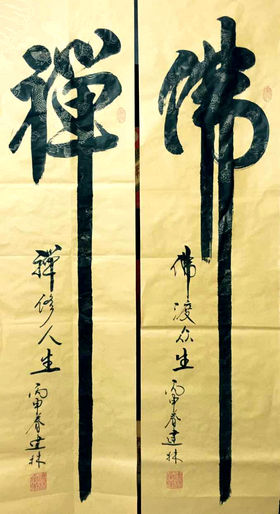 佛
佛渡众生
丙申春建林
禅
禅修人生
丙申春建林